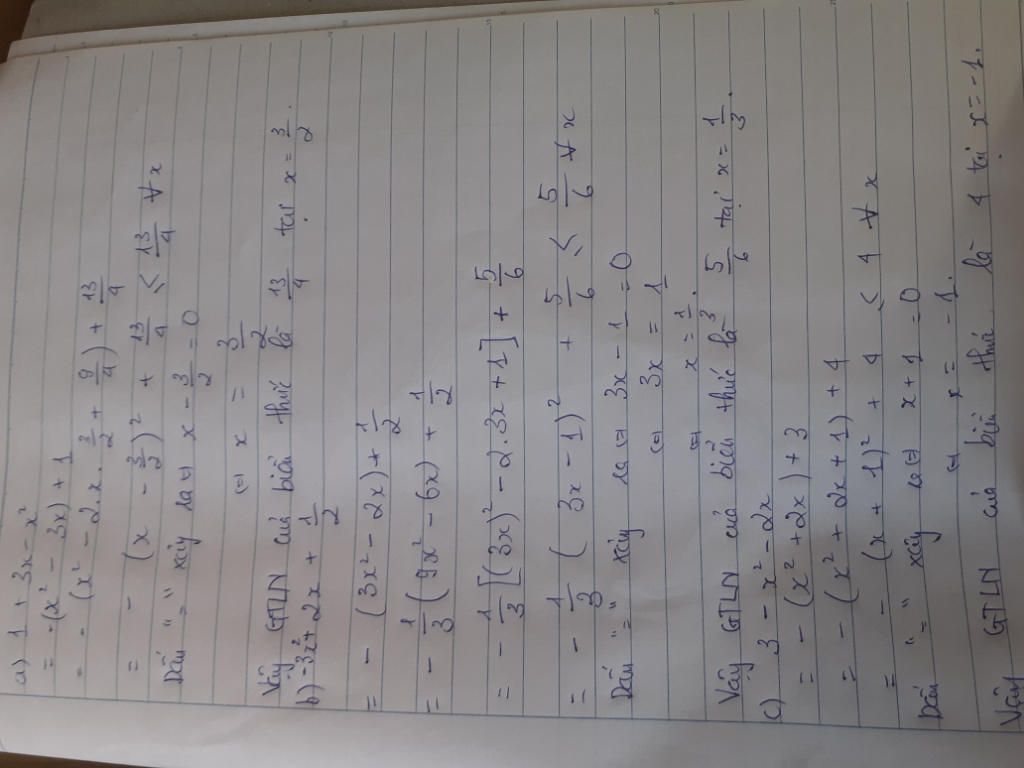 a) 1 + 3x - x²
= -(x² - 3x) + 1
= - (x² - 2.x.3/2 + 9/4) + 13/4
= - (x - 3/2)² + 13/4 ≤ 13/4 ∀ x
Dấu "=" xảy ra ⇔ x - 3/2 = 0
⇔ x = 3/2
Vậy GTLN của biểu thức là 13/4 tại x = 3/2.
b) -3x² + 2x + 1/2
= - (3x² - 2x) + 1/2
= - 1/3 (9x² - 6x) + 1/2
= - 1/3 [(3x)² - 2.3x + 1] + 5/6
= - 1/3 (3x - 1)² + 5/6 ≤ 5/6 ∀ x
Dấu "=" xảy ra ⇔ 3x - 1 = 0
⇔ 3x = 1
⇔ x = 1/3.
Vậy GTLN của biểu thức là 5/6 tại x = 1/3.
c) 3 - x² - 2x
= - (x² + 2x) + 3
= - (x² + 2x + 1) + 4
= - (x + 1)² + 4 ≤ 4 ∀ x
Dấu "=" xảy ra ⇔ x + 1 = 0
⇔ x = - 1.
Vậy GTLN của biểu thức là 4 tại x = - 1.